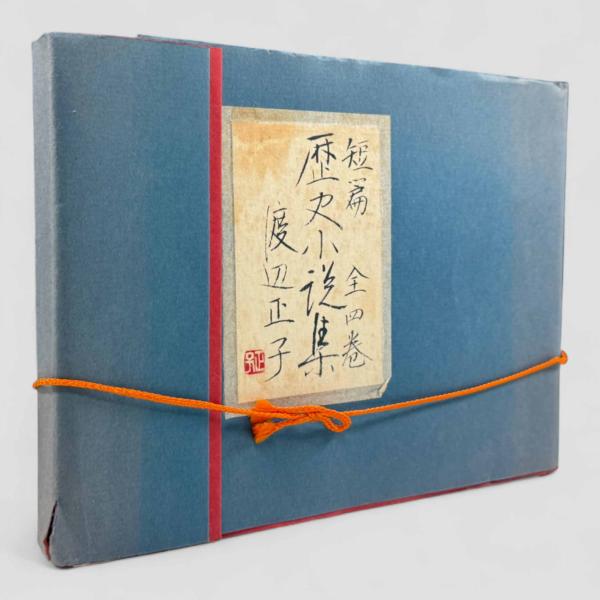 短篇 全四巻
歴史小説集
渡辺正子